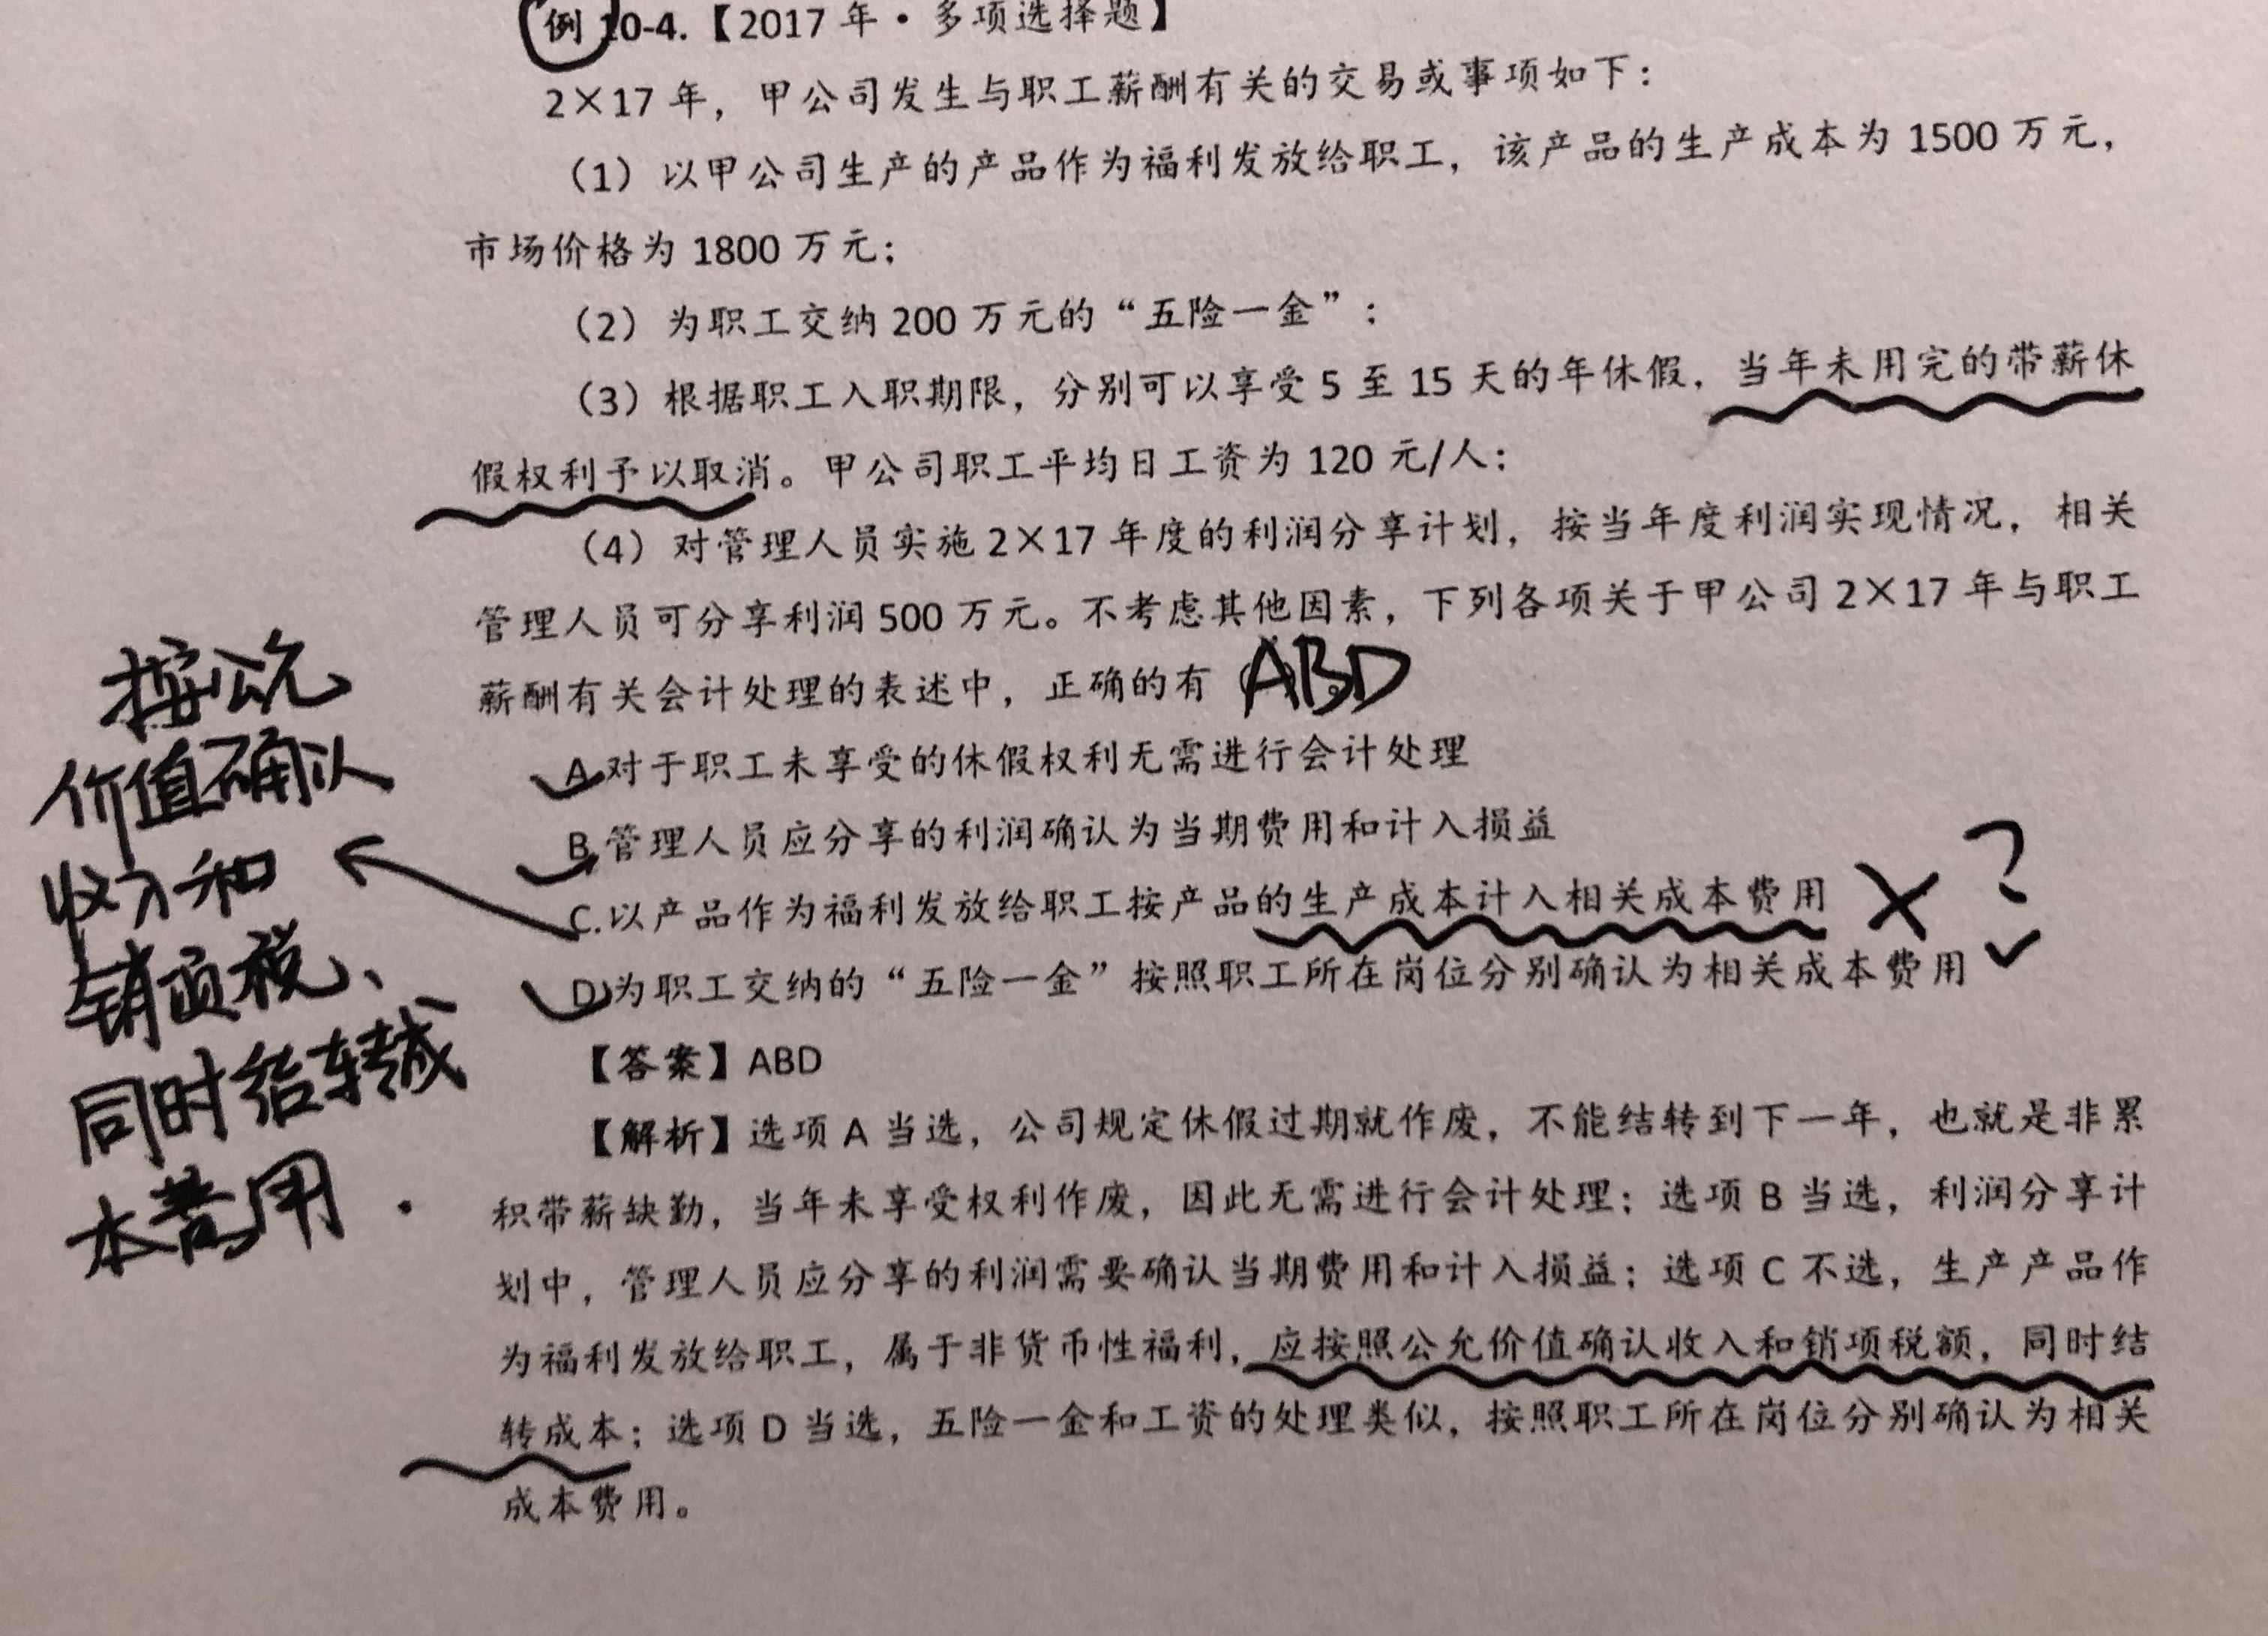 例10-4.【2017 年·多项选择题】
2×17 年，甲公司发生与职工薪酬有关的交易或事项如下：
（1）以甲公司生产的产品作为福利发放给职工，该产品的生产成本为 1500 万元，
市场价格为 1800 万元；
（2）为职工交纳 200 万元的“五险一金”：
（3）根据职工入职期限，分别可以享受 5 至 15 天的年休假，当年未用完的带薪休
假权利予以取消。甲公司职工平均日工资为 120 元/人：
（4）对管理人员实施 2×17 年度的利润分享计划，按当年度利润实现情况，相关
管理人员可分享利润 500 万元。不考虑其他因素，下列各项关于甲公司 2×17 年与职工
薪酬有关会计处理的表述中，正确的有 ABD
A.对于职工未享受的休假权利无需进行会计处理
B.管理人员应分享的利润确认为当期费用和计入损益
C.以产品作为福利发放给职工按产品的生产成本计入相关成本费用 ×？
D.为职工交纳的“五险一金”按照职工所在岗位分别确认为相关成本费用 ✓
按公允
价值确认
收入和
销项税、
同时结转成
本费用.
【答案】ABD
【解析】选项 A 当选，公司规定休假过期就作废，不能结转到下一年，也就是非累
积带薪缺勤，当年未享受权利作废，因此无需进行会计处理；选项 B 当选，利润分享计
划中，管理人员应分享的利润需要确认当期费用和计入损益；选项 C 不选，生产产品作
为福利发放给职工，属于非货币性福利，应按照公允价值确认收入和销项税额，同时结
转成本；选项 D 当选，五险一金和工资的处理类似，按照职工所在岗位分别确认为相关
成本费用。